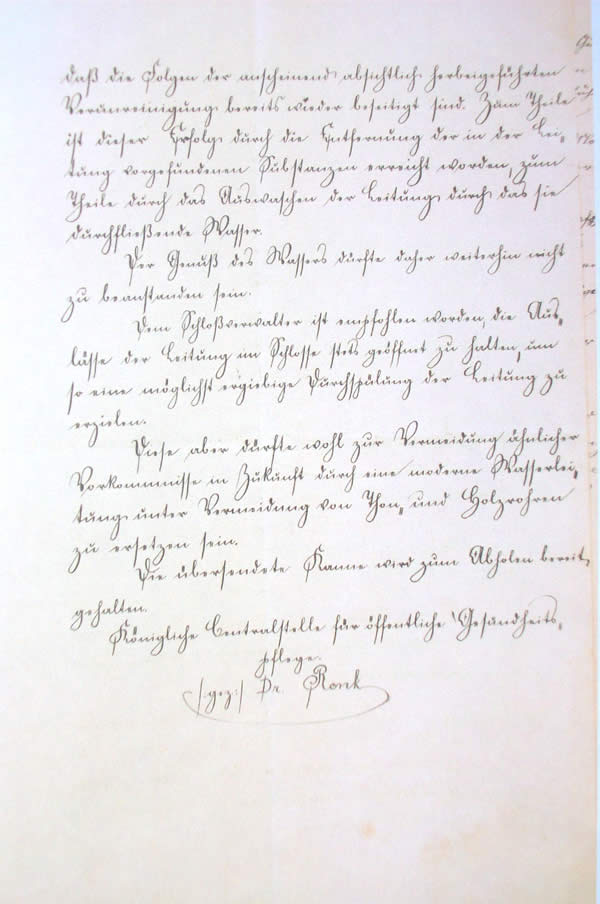 daß die Folgen der anscheinend absichtlich herbeigeführten
Verunreinigung bereits wieder beseitigt sind. Zum Theile
ist dieser Erfolg durch die Entfernung der in der Lei-
tung vorgefundenen Substanzen erreicht worden, zum
Theile durch das Auswaschen der Leitung durch das sie
durchfließende Wasser.
Der Genuß des Wassers dürfte daher weiterhin nicht
zu beanstanden sein.
Dem Schloßverwalter ist empfohlen worden, die Aus-
lässe der Leitung im Schlosse stets geöffnet zu halten, um
so eine möglichst ergiebige Durchspülung der Leitung zu
erzielen.
Diese aber dürfte wohl zur Vermeidung ähnlicher
Vorkommnisse in Zukunft durch eine moderne Wasserlei-
tung unter Vermeidung von Thon- und Holzröhren
zu ersetzen sein.
Die übersendete Kanne wird zum Abholen bereit
gehalten.
Königliche Centralstelle für öffentliche Gesundheits-
pflege.
/gez:/ Dr. Renk